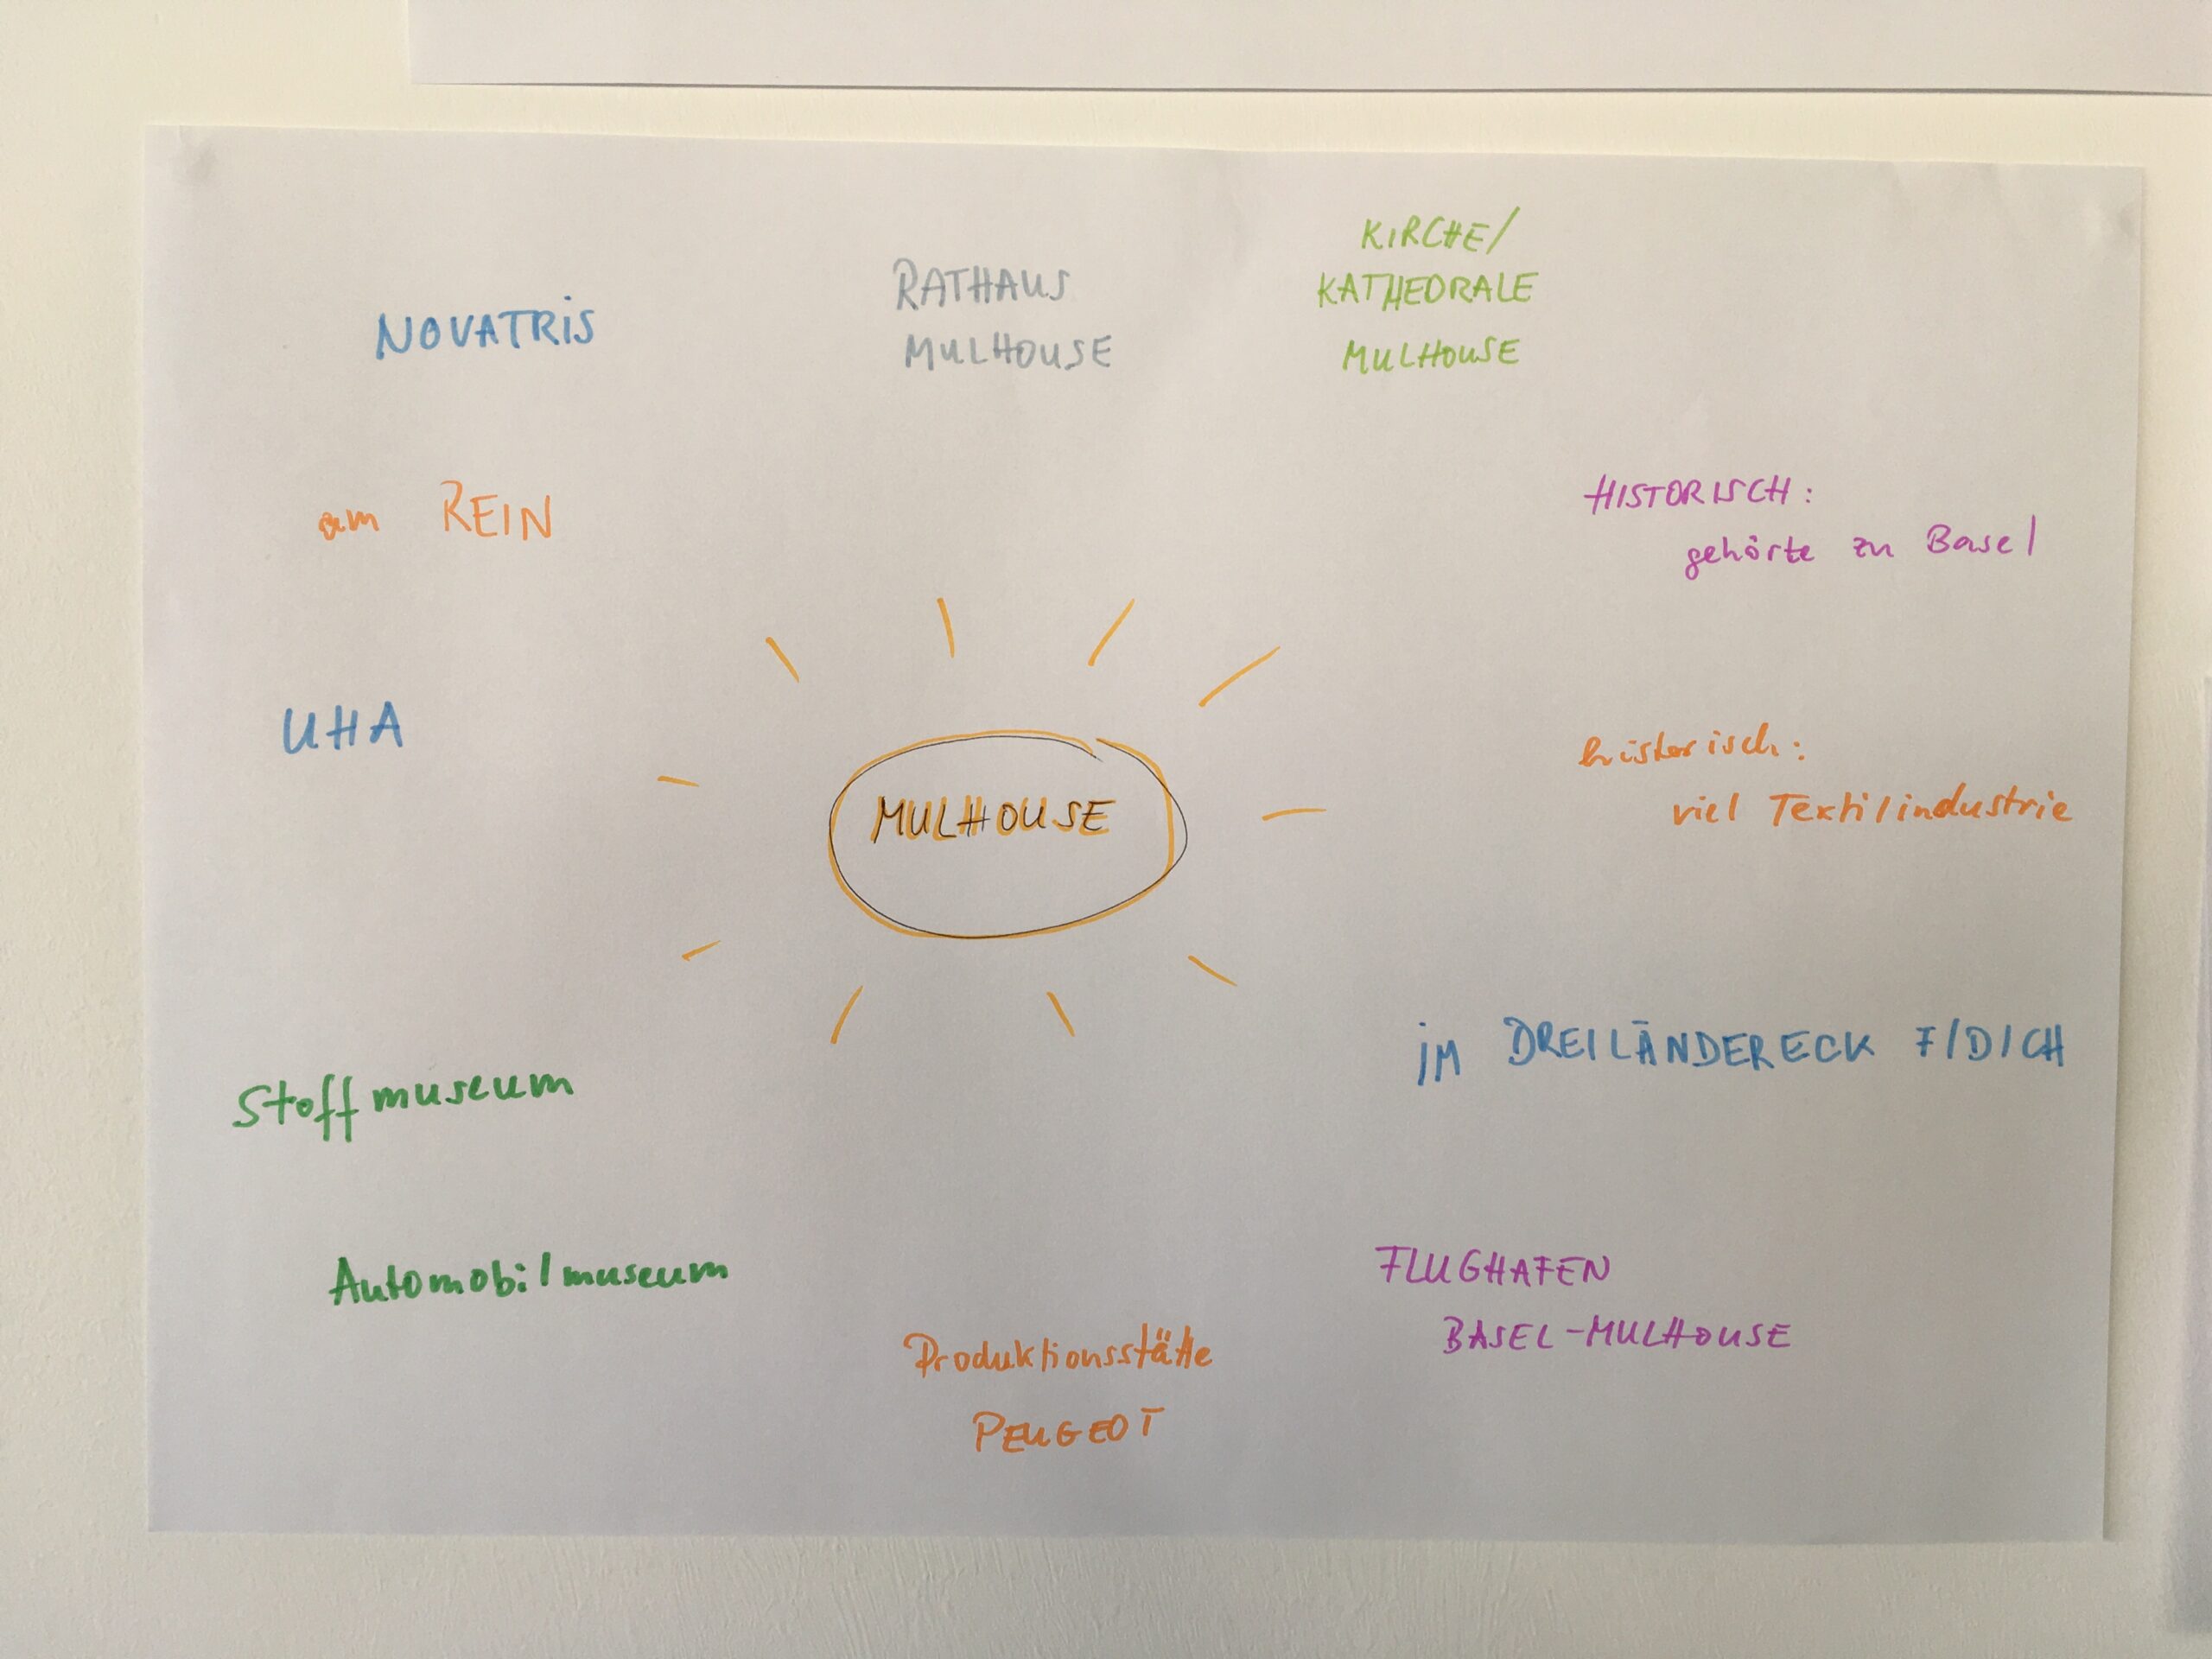 NOVATRIS
RATHAUS
MULHOUSE
KIRCHE/
KATHEDRALE
MULHOUSE
am REIN
HISTORISCH:
gehörte zu Basel
UHA
MULHOUSE
historisch:
viel Textilindustrie
Stoffmuseum
iM DREILÄNDERECK F/D/CH
Automobilmuseum
FLUGHAFEN
BASEL-MULHOUSE
Produktionsstätte
PEUGEOT